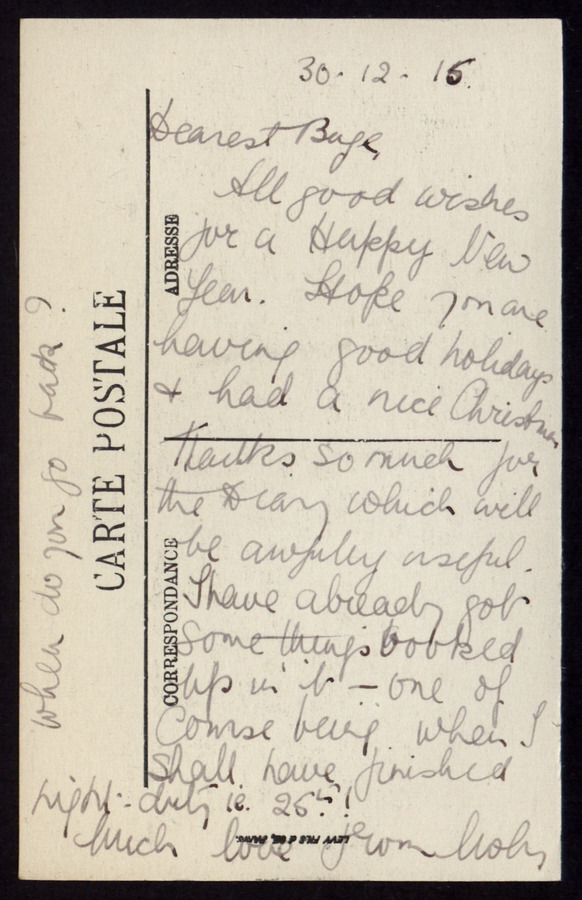 30 - 12 - 15.
Dearest Buge,
All good wishes
for a Happy New
Year. Hope you are
having good holidays
& had a nice Christmas
Thanks so much for
the Diary which will
be awfully useful.
I have already got
some things booked
up in it – one of
course being when I
shall have finished
night-duty ie. 25th!
Much love from
When do you go back?
CARTE POSTALE
ADRESSE
CORRESPONDANCE
LEVY FILS & CO, PARIS.